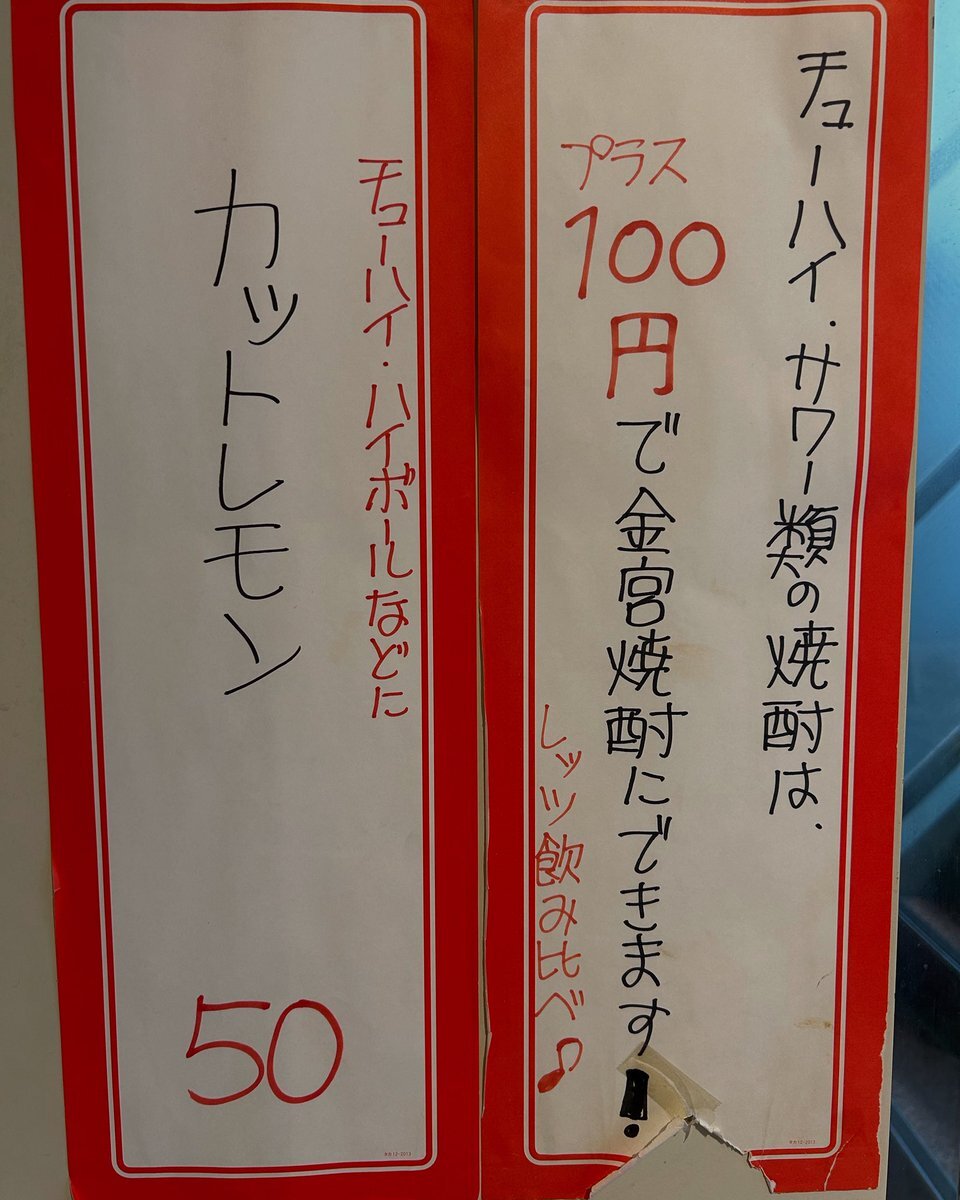 チューハイ・サワー類の焼酎は、
プラス
100
円で金宮焼酎にできます!
レッツ飲み比べ♪
タカ12-2013
チューハイ・ハイボールなどに
カットレモン
50
タカ12-2013